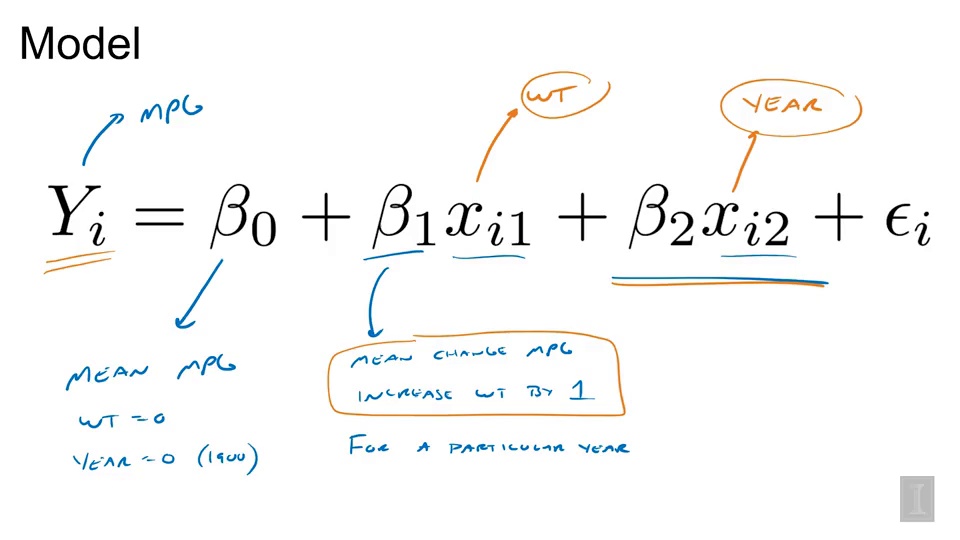 Model
MPG
WT
YEAR
Y_i = β_0 + β_1 x_{i1} + β_2 x_{i2} + ϵ_i
MEAN MPG
WT = 0
YEAR = 0 (1900)
MEAN CHANGE MPG
INCREASE WT BY 1
FOR A PARTICULAR YEAR
I